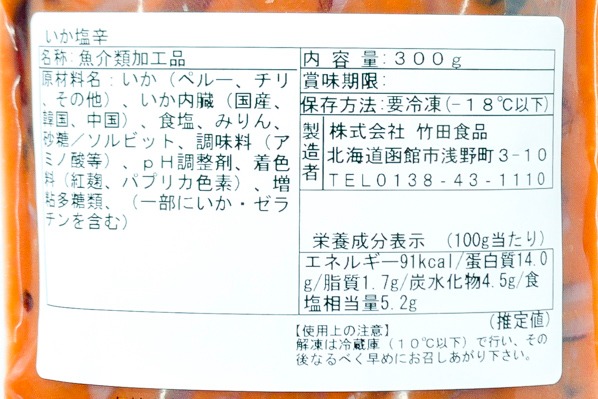 いか塩辛
名称:魚介類加工品
原材料名:いか（ペルー、チリ
、その他）、いか内臓（国産、
韓国、中国）、食塩、みりん、
砂糖／ソルビット、調味料（ア
ミノ酸等）、ｐＨ調整剤、着色
料（紅麹、パプリカ色素）、増
粘多糖類、（一部にいか・ゼラ
チンを含む）
内容量:３００ｇ
賞味期限:
保存方法:要冷凍(－１８℃以下)
製造者
株式会社 竹田食品
北海道函館市浅野町３-１０
ＴＥＬ０１３８-４３-１１１０
栄養成分表示 （100g当たり）
エネルギー91kcal/蛋白質14.0
g/脂質1.7g/炭水化物4.5g/食
塩相当量5.2g
（推定値）
【使用上の注意】
解凍は冷蔵庫（１０℃以下）で行い、その
後なるべく早めにお召しあがり下さい。